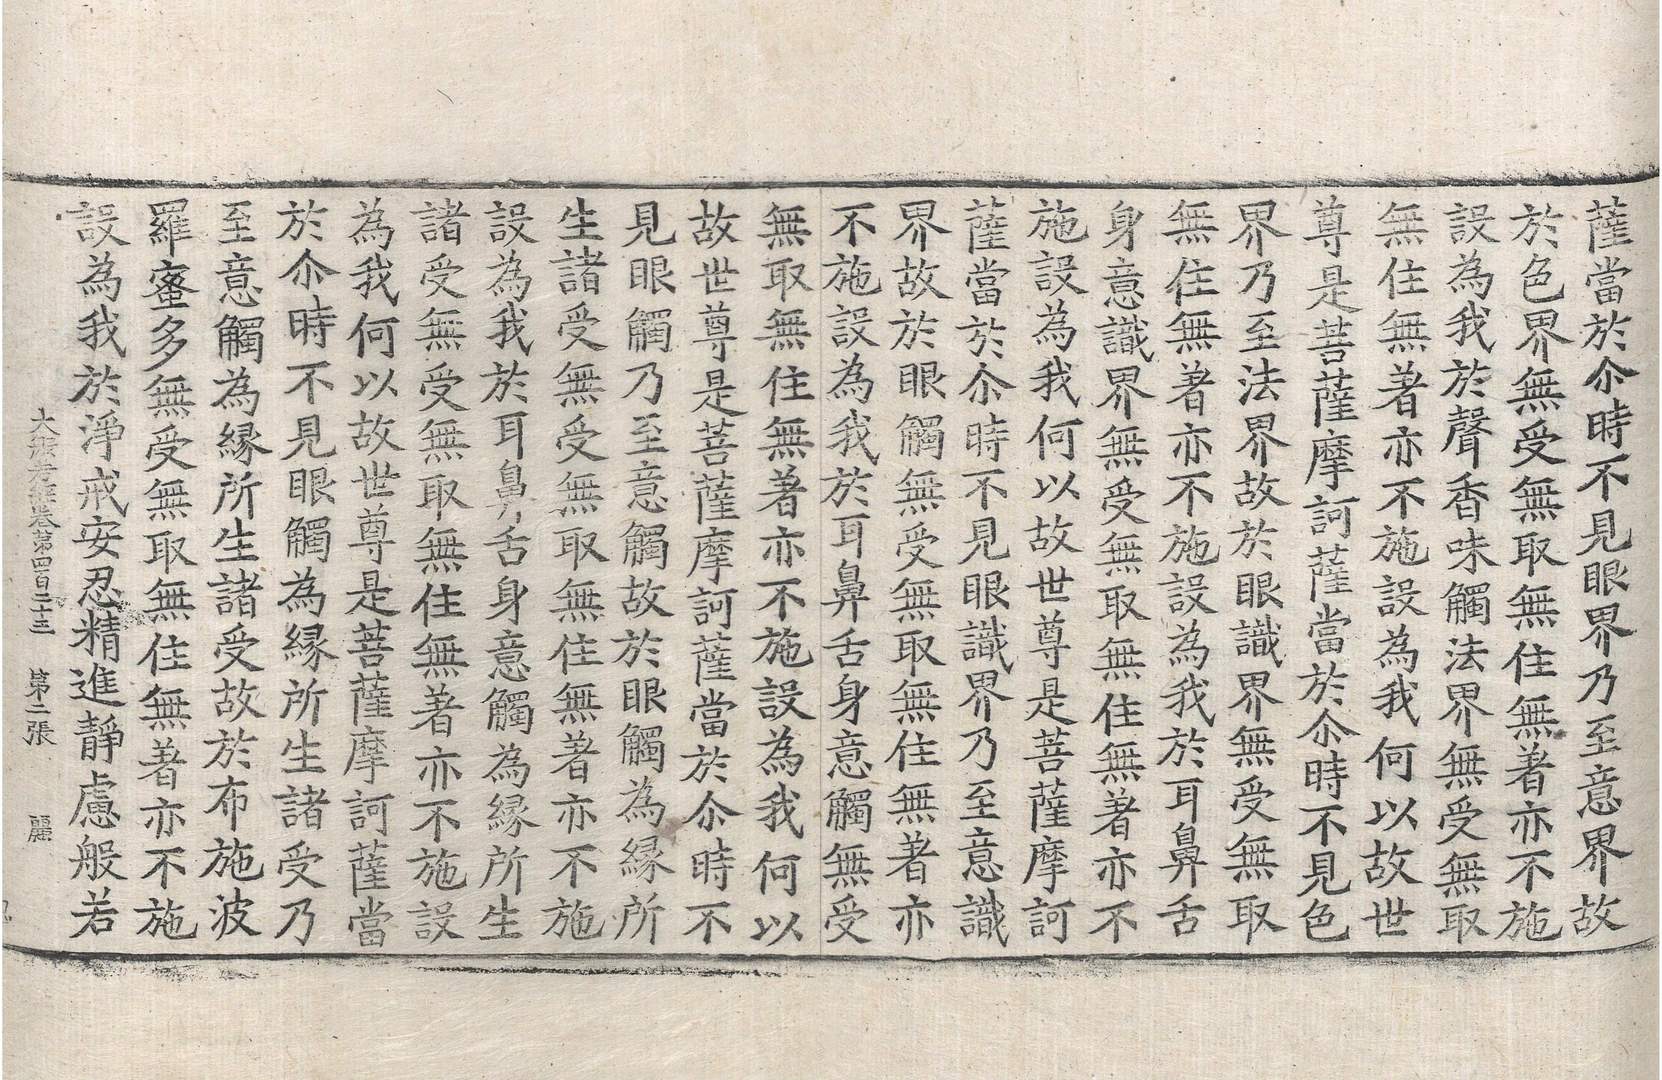 薩當於尒時不見眼界乃至意界故
於色界無受無取無住無著亦不施
設為我於聲香味觸法界無受無取
無住無著亦不施設為我何以故世
尊是菩薩摩訶薩當於尒時不見色
界乃至法界故於眼識界無受無取
無住無著亦不施設為我於耳鼻舌
身意識界無受無取無住無著亦不
施設為我何以故世尊是菩薩摩訶
薩當於尒時不見眼識界乃至意識
界故於眼觸無受無取無住無著亦
不施設為我於耳鼻舌身意觸無受
無取無住無著亦不施設為我何以
故世尊是菩薩摩訶薩當於尒時不
見眼觸乃至意觸故於眼觸為縁所
生諸受無受無取無住無著亦不施
設為我於耳鼻舌身意觸為縁所生
諸受無受無取無住無著亦不施設
為我何以故世尊是菩薩摩訶薩當
於尒時不見眼觸為縁所生諸受乃
至意觸為縁所生諸受故於布施波
羅蜜多無受無取無住無著亦不施
設為我於淨戒安忍精進靜慮般若
大般若經卷第四百二十三 第二張 麗